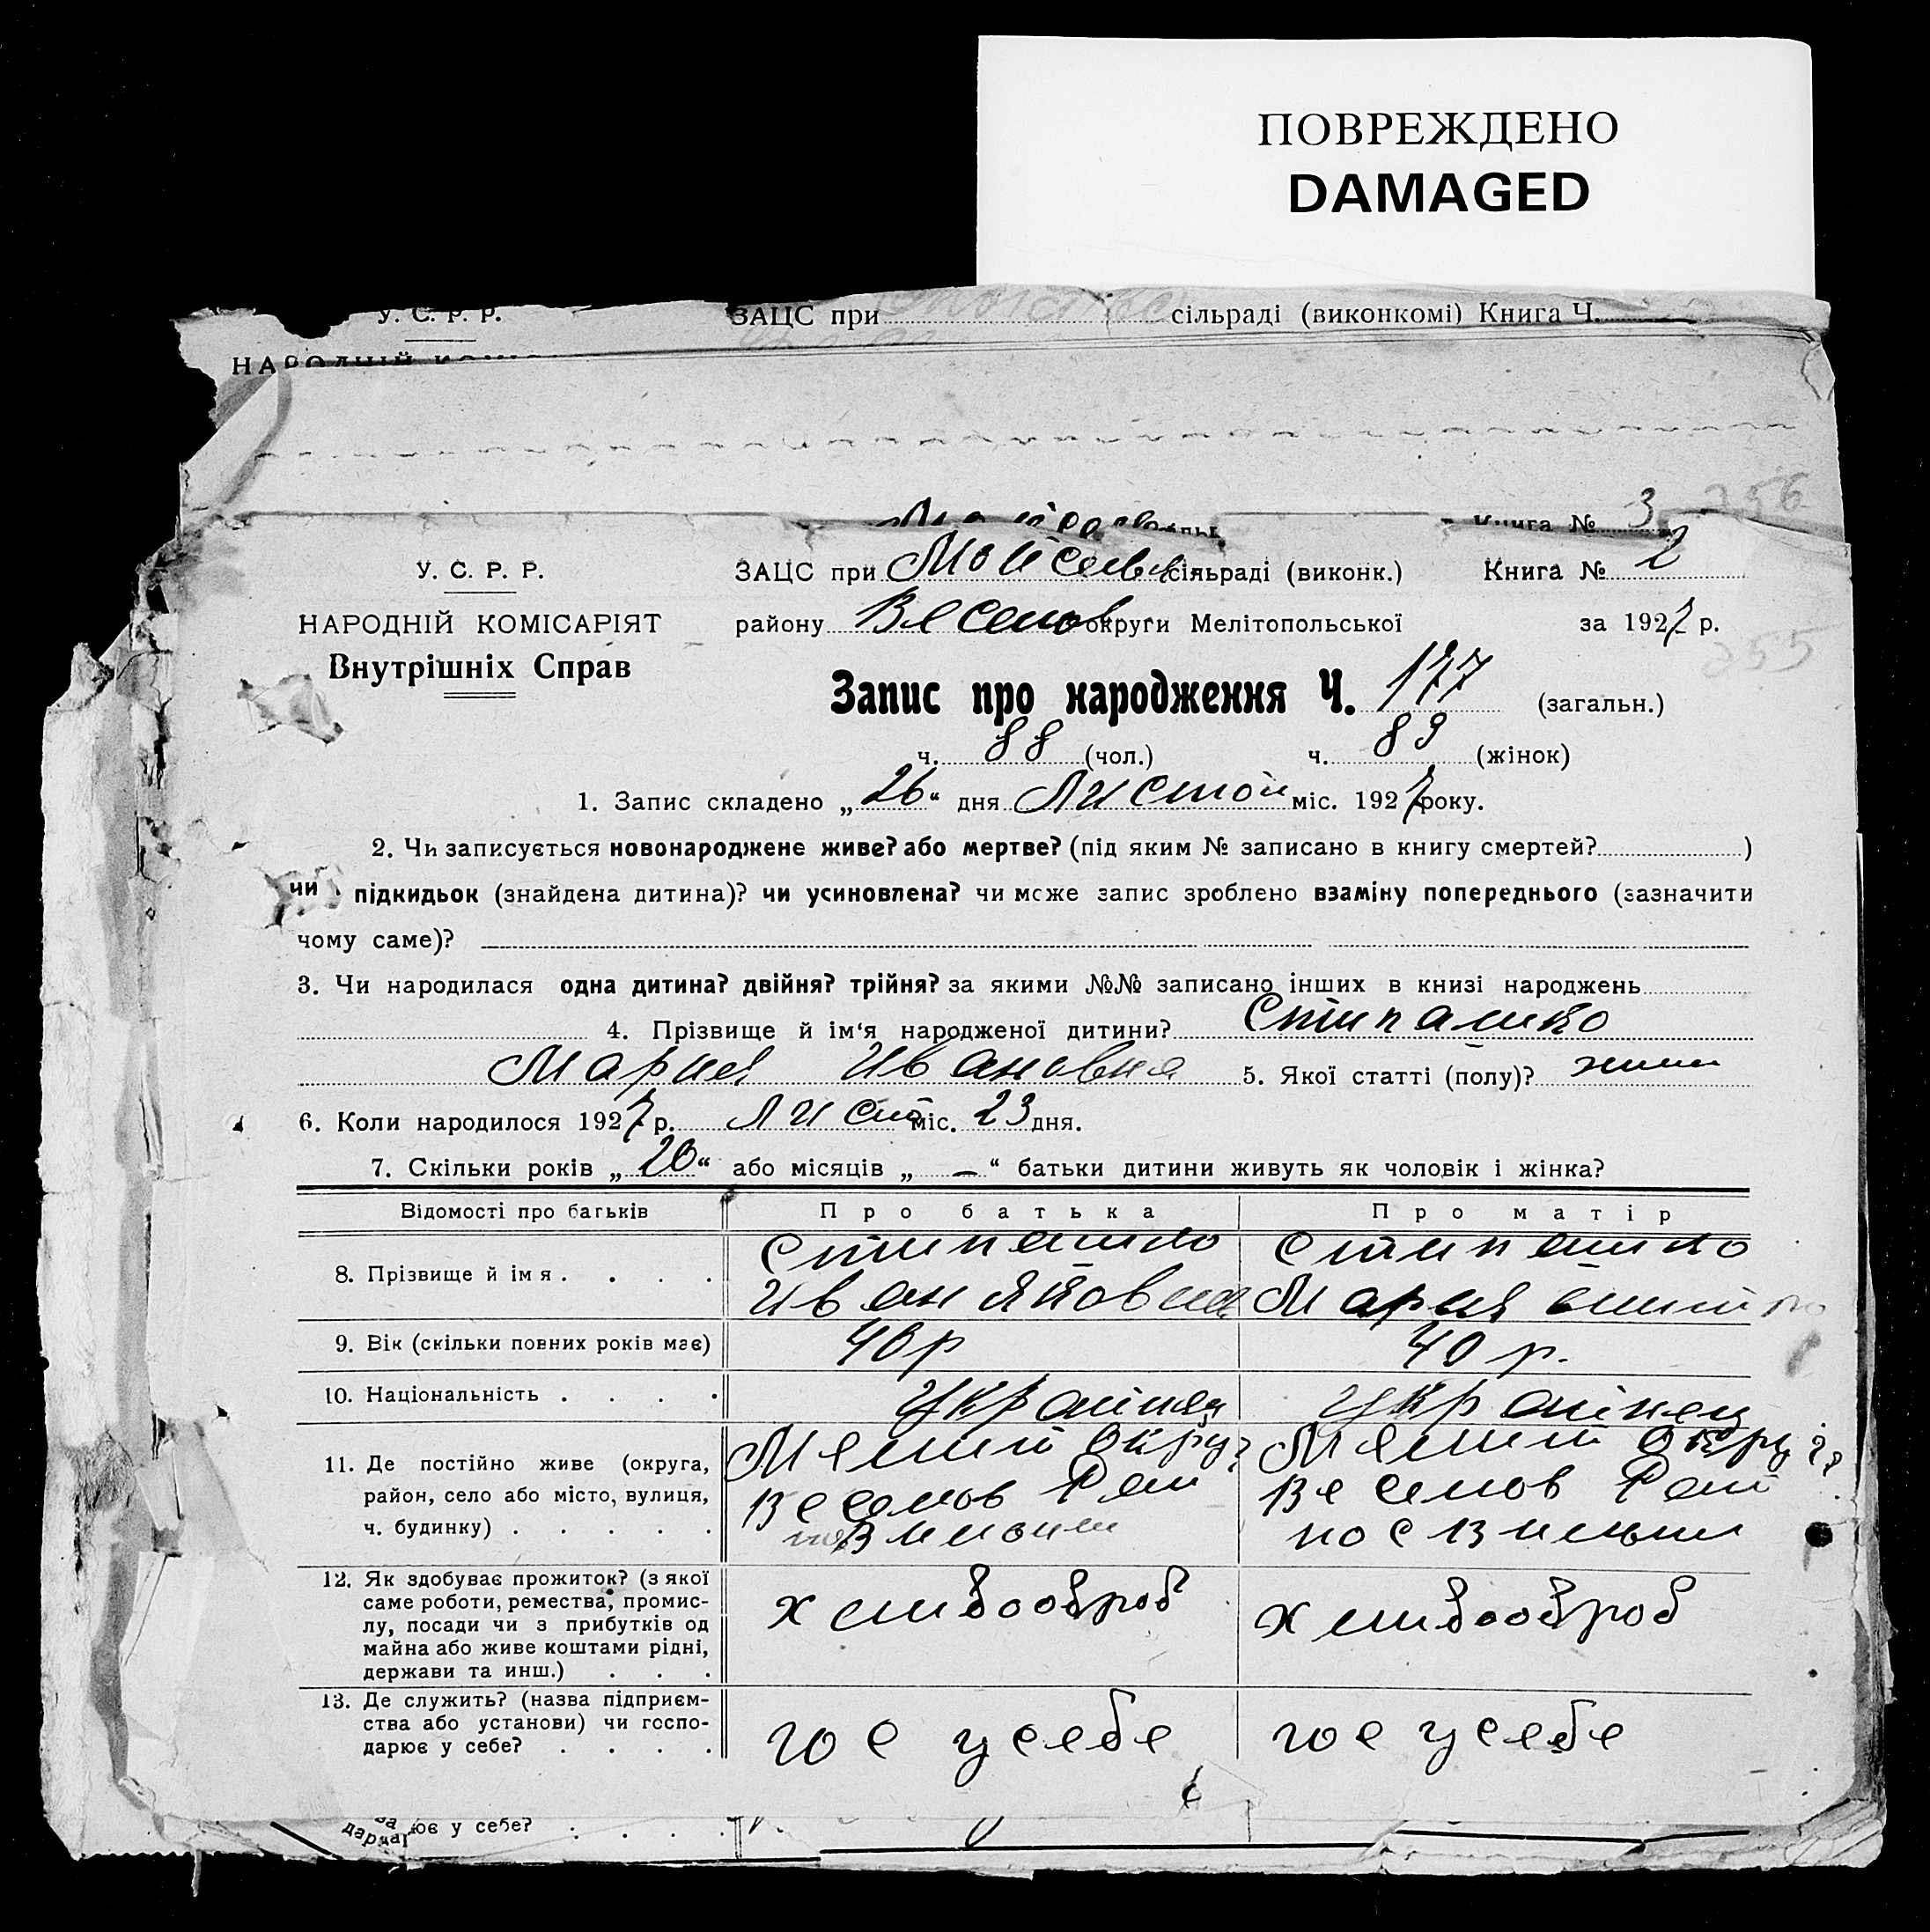 ПОВРЕЖДЕНО
DAMAGED
У. С. Р. Р.
ЗАЦС при сільраді (виконкомі) Книга Ч.
НАРОДНІЙ
Книга № 3
256
У. С. Р. Р.
ЗАЦС при Мойсеев. сільраді (виконк.) Книга № 2
НАРОДНІЙ КОМІСАРІЯТ
району Веселов округи Мелітопольської за 1927 р.
255
Внутрішніх Справ
Запис про народження Ч. 177 (загальн.)
ч. 88 (чол.) ч. 89 (жінок)
1. Запис складено „26“ дня Листоп міс. 1927 року.
2. Чи записується новонароджене живе? або мертве? (під яким № записано в книгу смертей? )
чи підкидьок (знайдена дитина)? чи усиновлена? чи може запис зроблено взаміну попереднього (зазначити
чому саме)?
3. Чи народилася одна дитина? двійня? трійня? за якими №№ записано інших в книзі народжень
4. Прізвище й ім‘я народженої дитини?
Мария Ивановна 5. Якої статті (полу)? жин
6. Коли народилося 1927 р. Лист міс. 23 дня.
7. Скільки років „20“ або місяців „—“ батьки дитини живуть як чоловік і жінка?
Відомості про батьків Про батька Про матір
8. Прізвище й імя . . . .
Иван Мария
9. Вік (скільки повних років має) 40 р 40 р.
10. Національність . . . . Українец Українец
11. Де постійно живе (округа, Мелит Округ Мелит Округ
район, село або місто, вулиця, Веселов Рай Веселов Рай
ч. будинку) . . . . .
12. Як здобуває прожиток? (з якої
саме роботи, ремества, промис-
лу, посади чи з прибутків од хлибооброб хлибооброб
майна або живе коштами рідні,
держави та инш.) . . .
13. Де служить? (назва підприєм-
ства або установи) чи госпо- гос у себе гос у себе
дарює у себе? . . . .
дарює у себе? . . . .